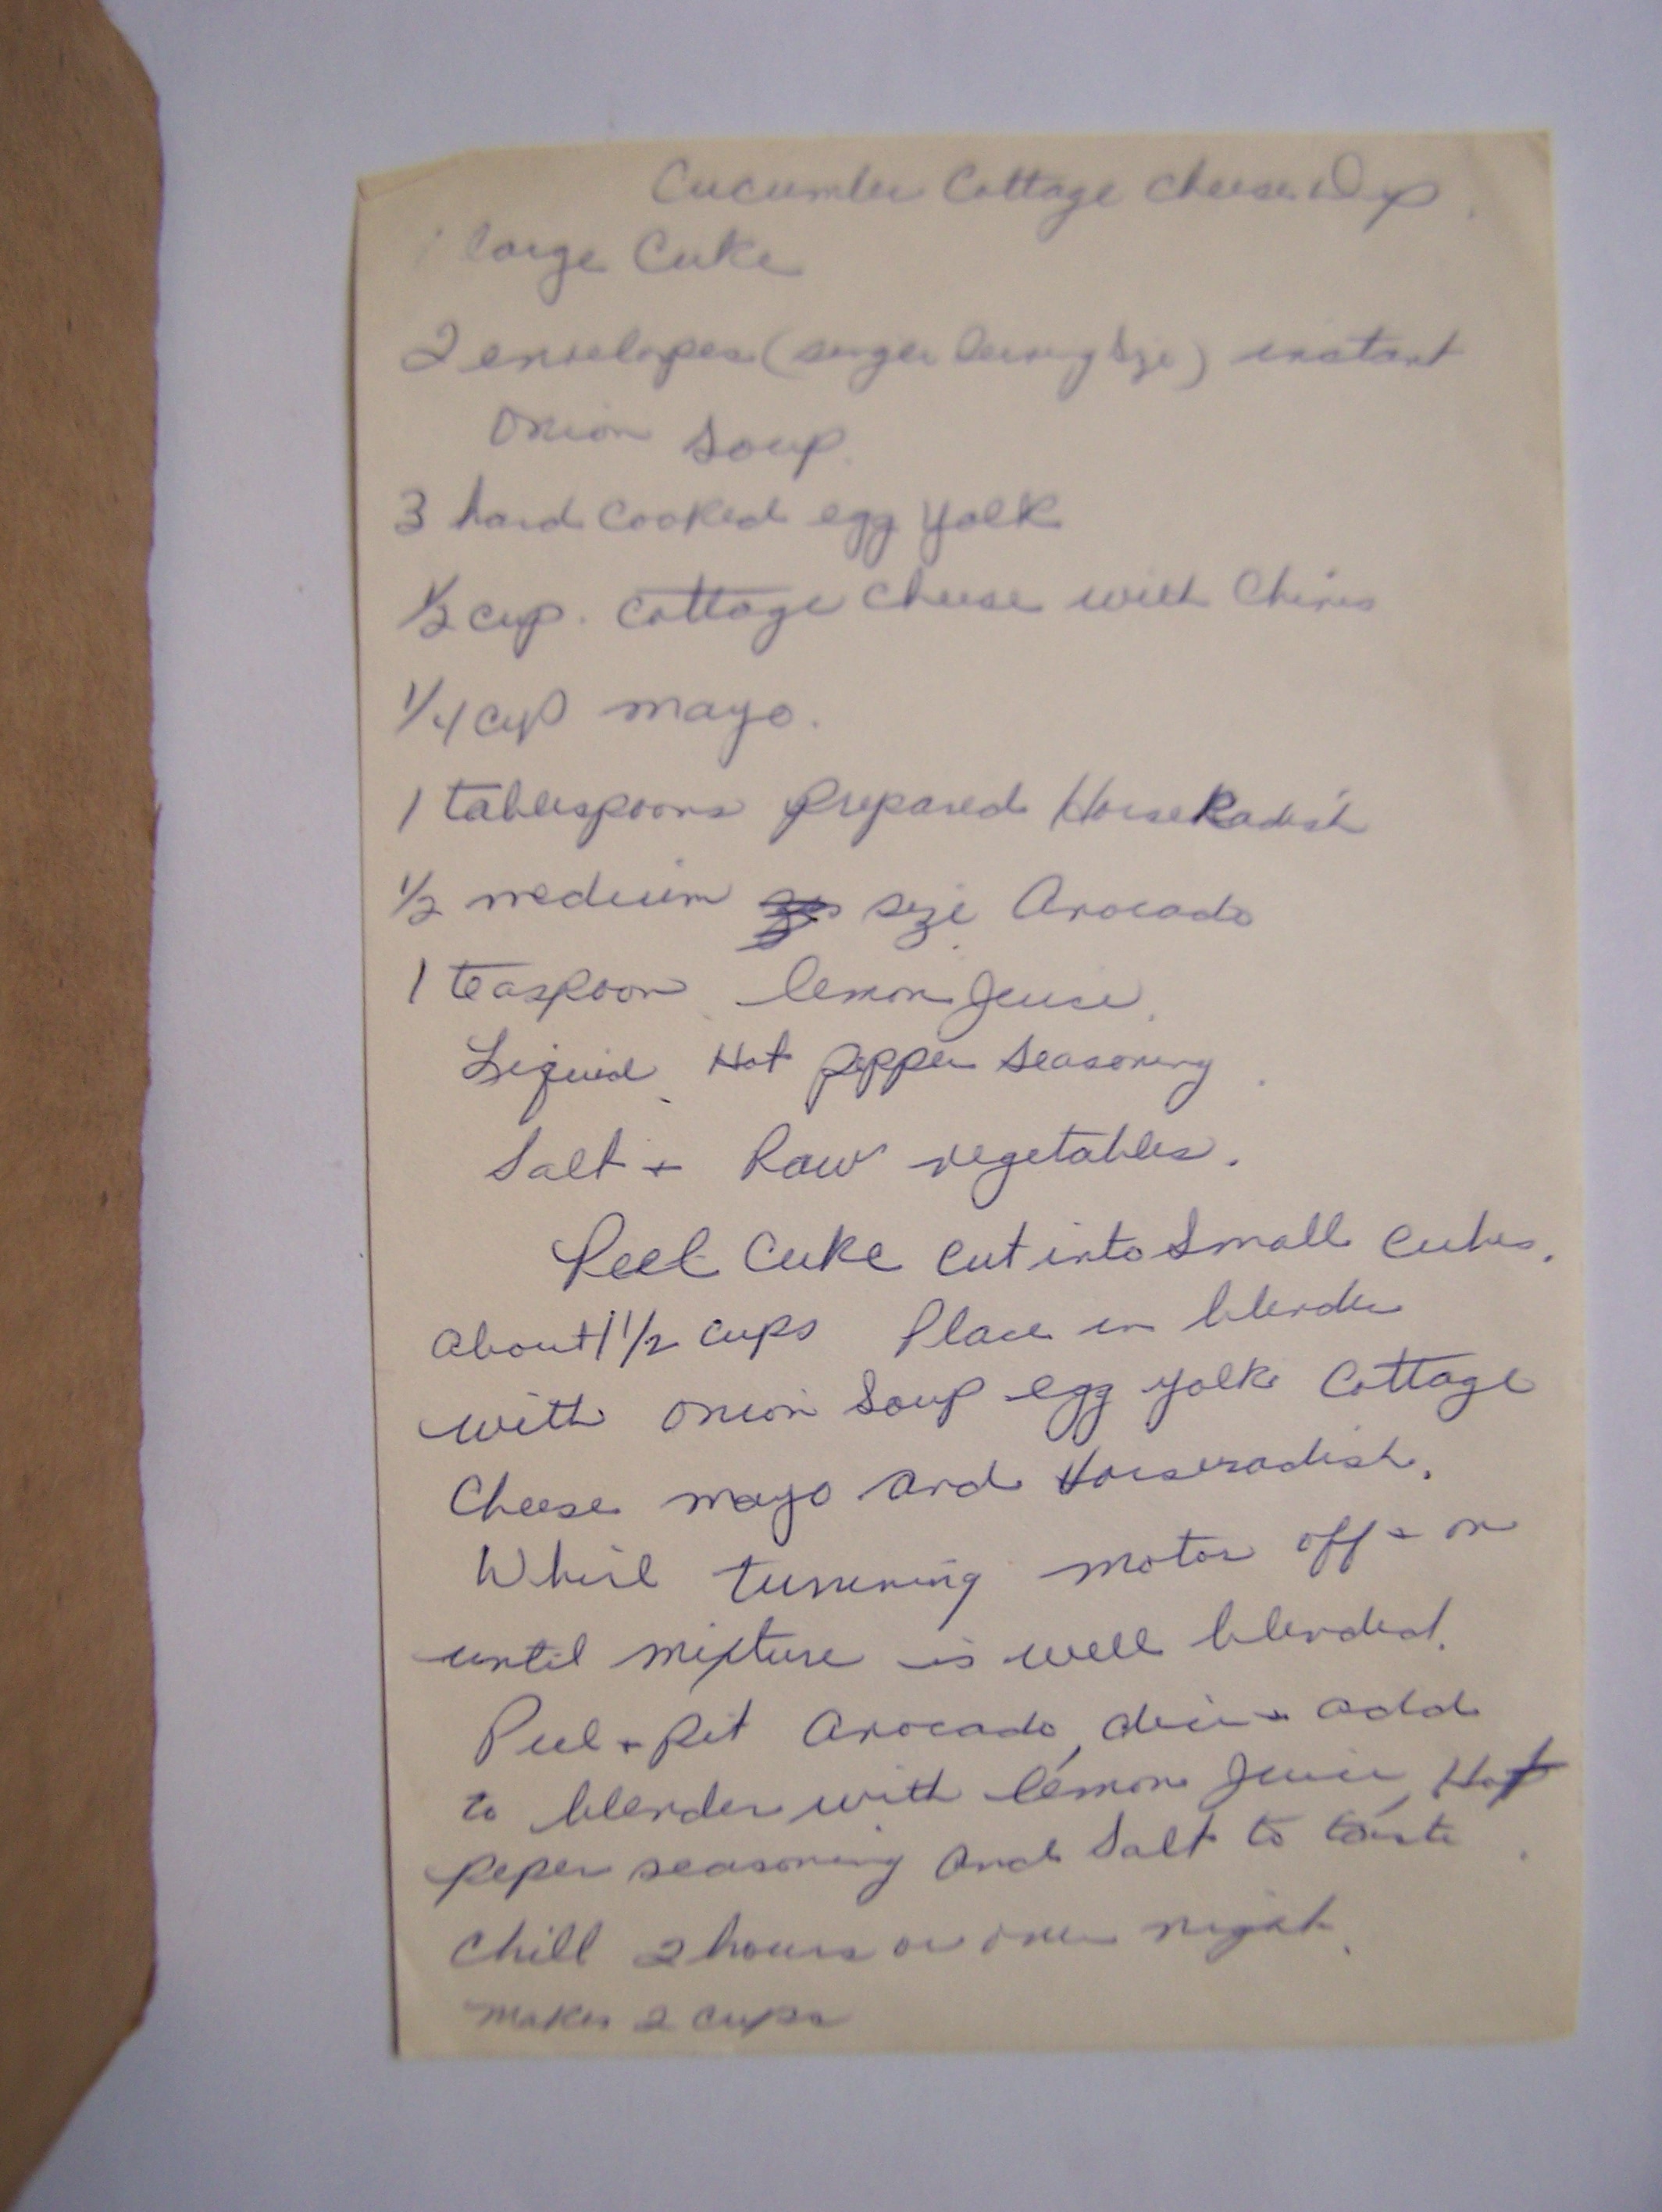 Cucumber Cottage Cheese Dip
1 large Cuke
2 envelopes (single serving size) instant
onion soup
3 hard cooked egg yolk
1/2 cup. cottage cheese with Chives
1/4 cup mayo.
1 tablespoons prepared HorseRadish
1/2 medium size Avocado
1 teaspoon lemon Juice.
Liquid Hot pepper seasoning.
Salt + Raw vegetables.
Peel Cuke cut into Small cubes.
about 1 1/2 cups Place in blender
with onion Soup egg yolk Cottage
Cheese mayo and Horseradish.
Whirl turnning motor off + on
until mixture is well blended.
Peel + pit avocado, dice + add
to blender with lemon Juice, Hot
peper seasoning and Salt to taste.
Chill 2 hours or over night.
makes 2 cups